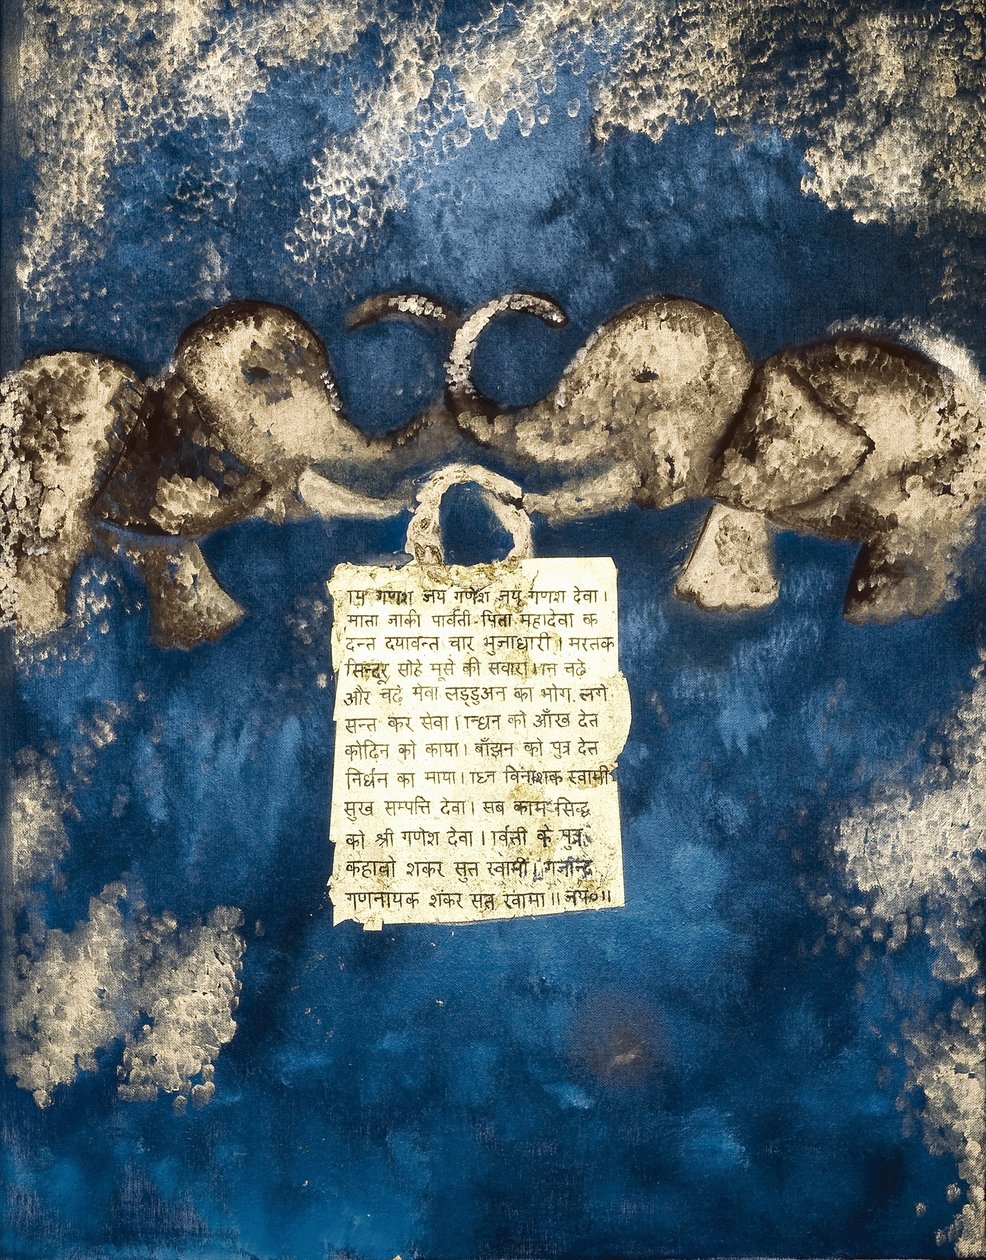 गणश जय गणेश जय गणश देवा।
माता जाकी पार्वती पिता महादेवा क
दन्त दयावन्त चार भुजाधारी। मरतक
सिन्दूर सोहे मूसे की सवारा।ान चढ़े
और चढ़े मेवा लड्डुअन का भोग लगे
सन्त कर सेवा।न्धन को आँख देत
कोढ़िन को काया। बाँझन को पुत्र देत
निर्धन का माया।ाघ्न विनाशक स्वामी
सुख सम्पत्ति देवा। सब काम सिद्ध
को श्री गणेश देवा। ार्वती के पुत्र
कहावो शकर सुत स्वामी। गजान्द
गणनायक शंकर सत स्वामा॥ जय०॥